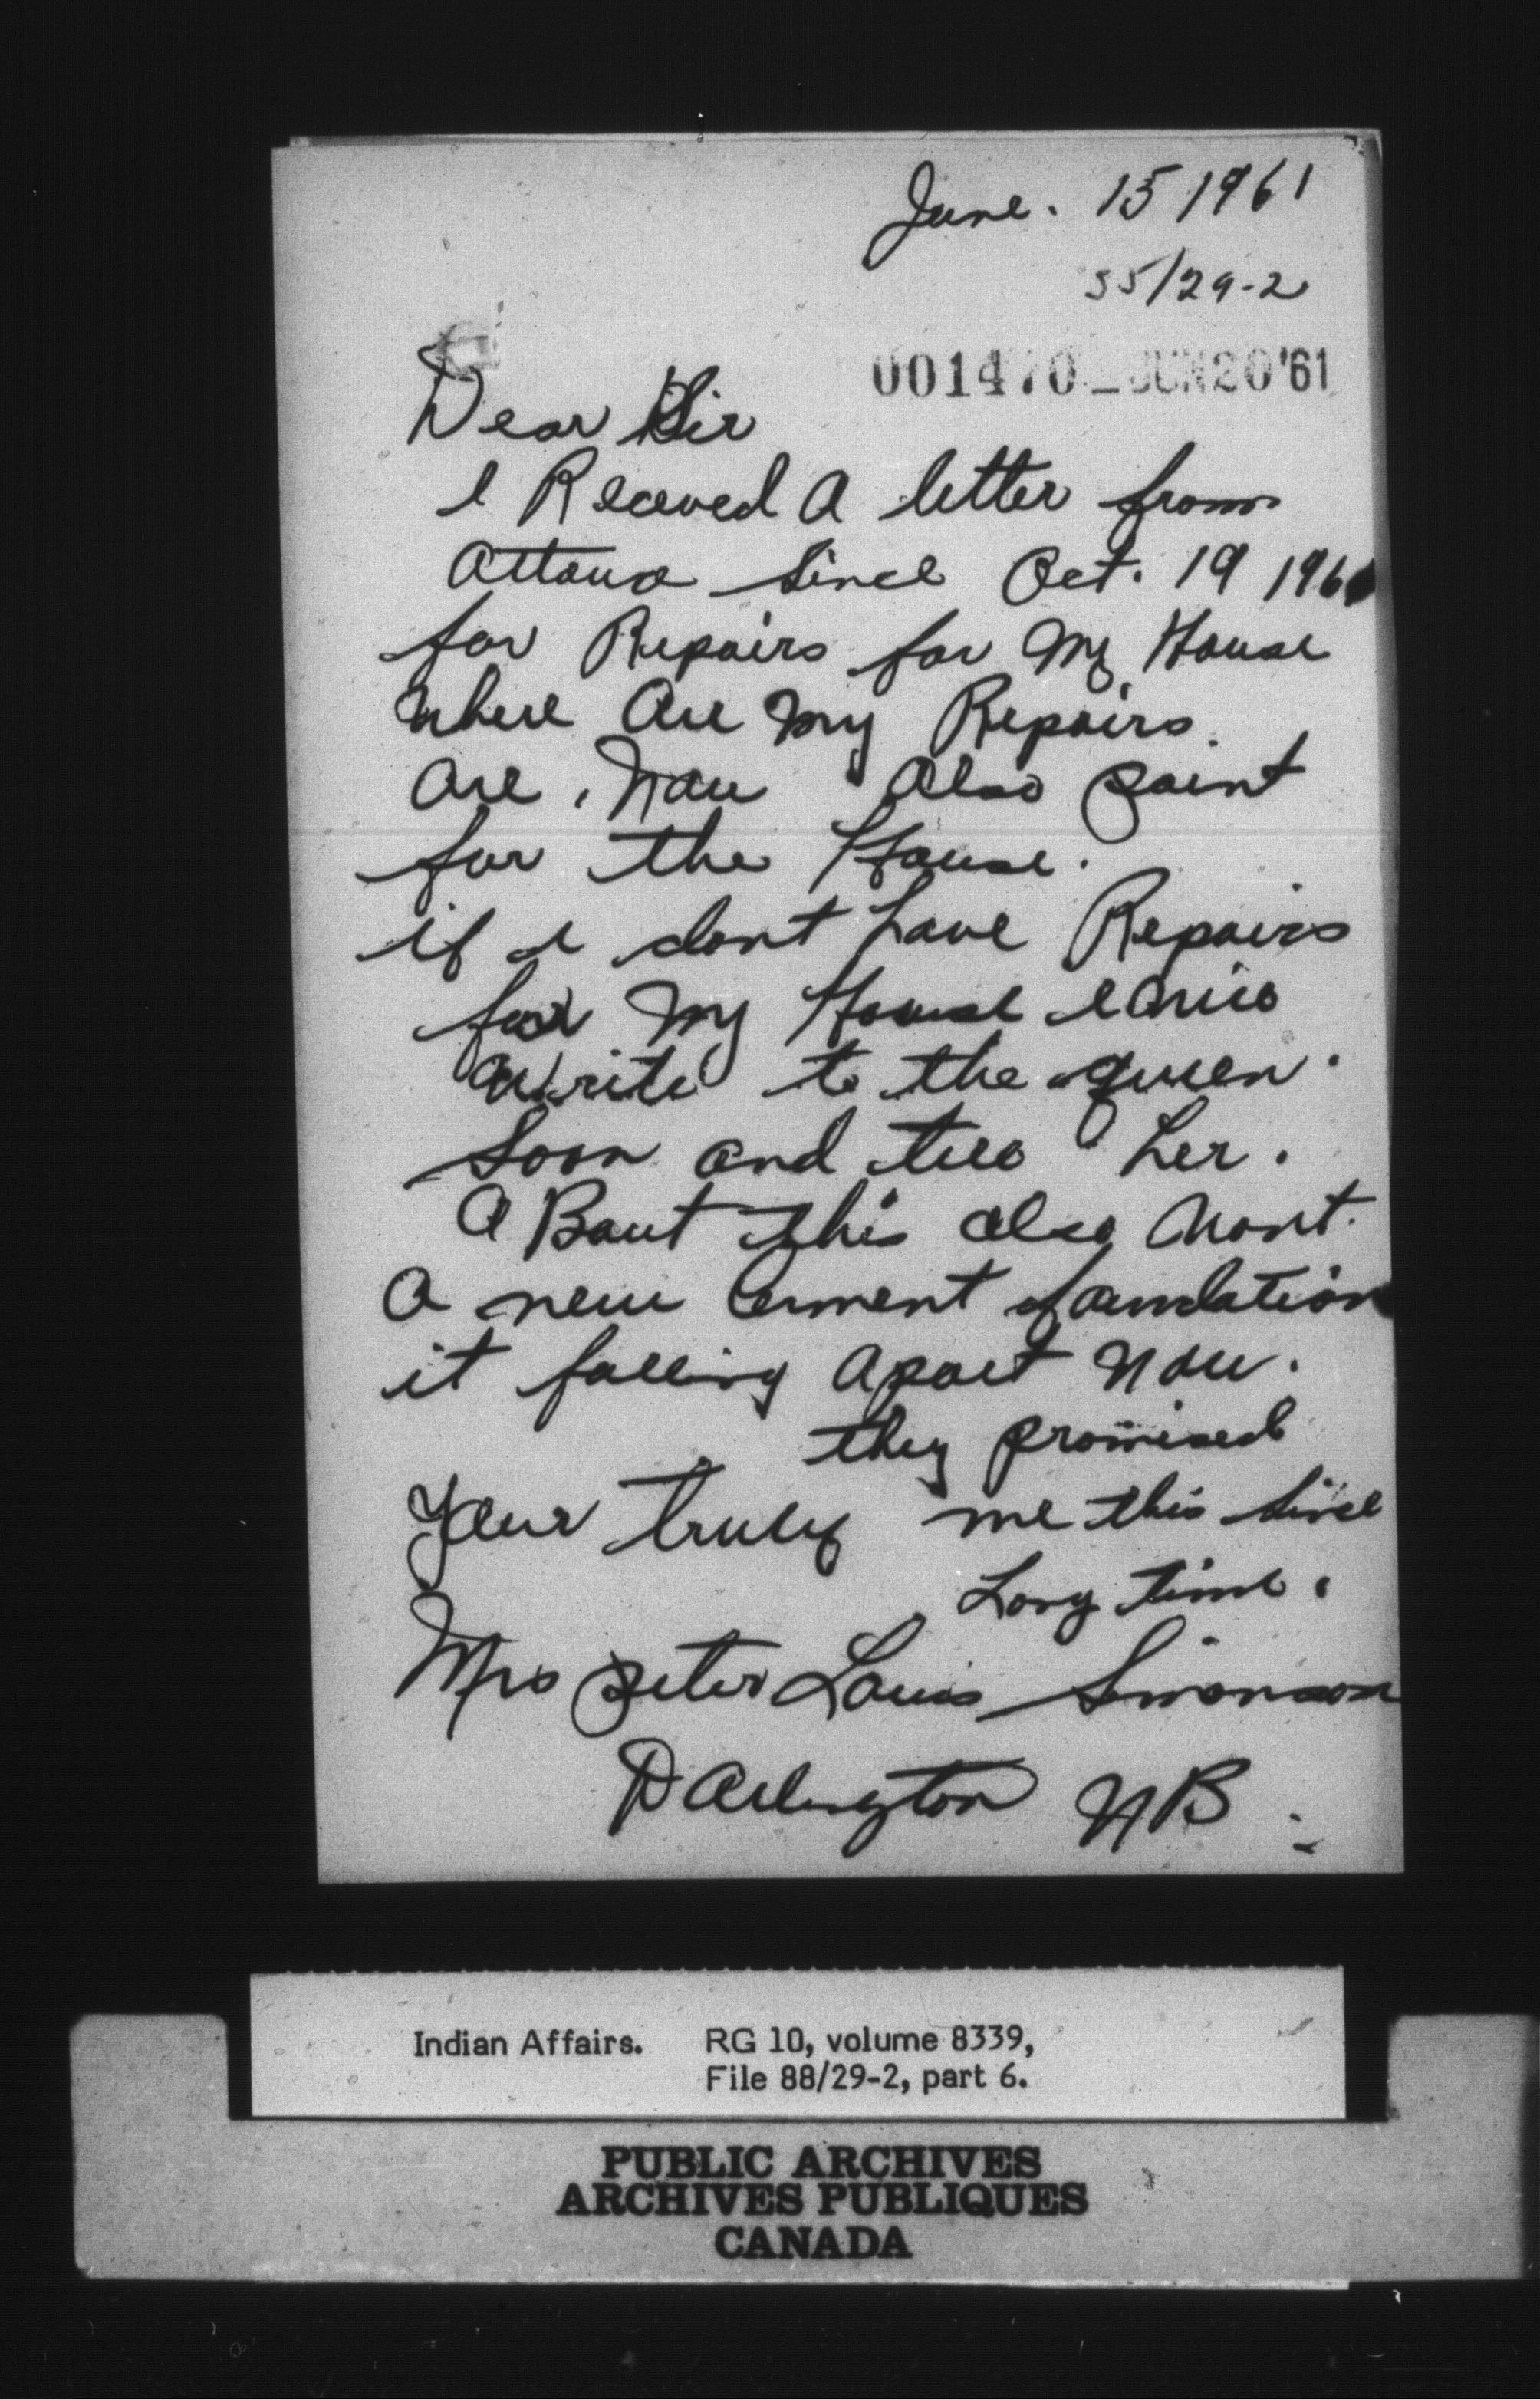 June. 15 1961
55/29-2
001470 - JUN 20 '61
Dear Sir
I Receved A letter from
Ottawa since Oct. 19 196
for Repairs for My House
where Are My Repairs.
are, Now Also paint
for the House.
if I dont have Repairs
for My House I will
write to the queen.
Soon and tell her.
A Bout this also want
A new Cement foundation
it falling Apart now.
they promised
Your truly me this since
Long time.
Mrs Peter Louis Swanson
DArlington NB
Indian Affairs. RG 10, volume 8339,
File 88/29-2, part 6.
PUBLIC ARCHIVES
ARCHIVES PUBLIQUES
CANADA